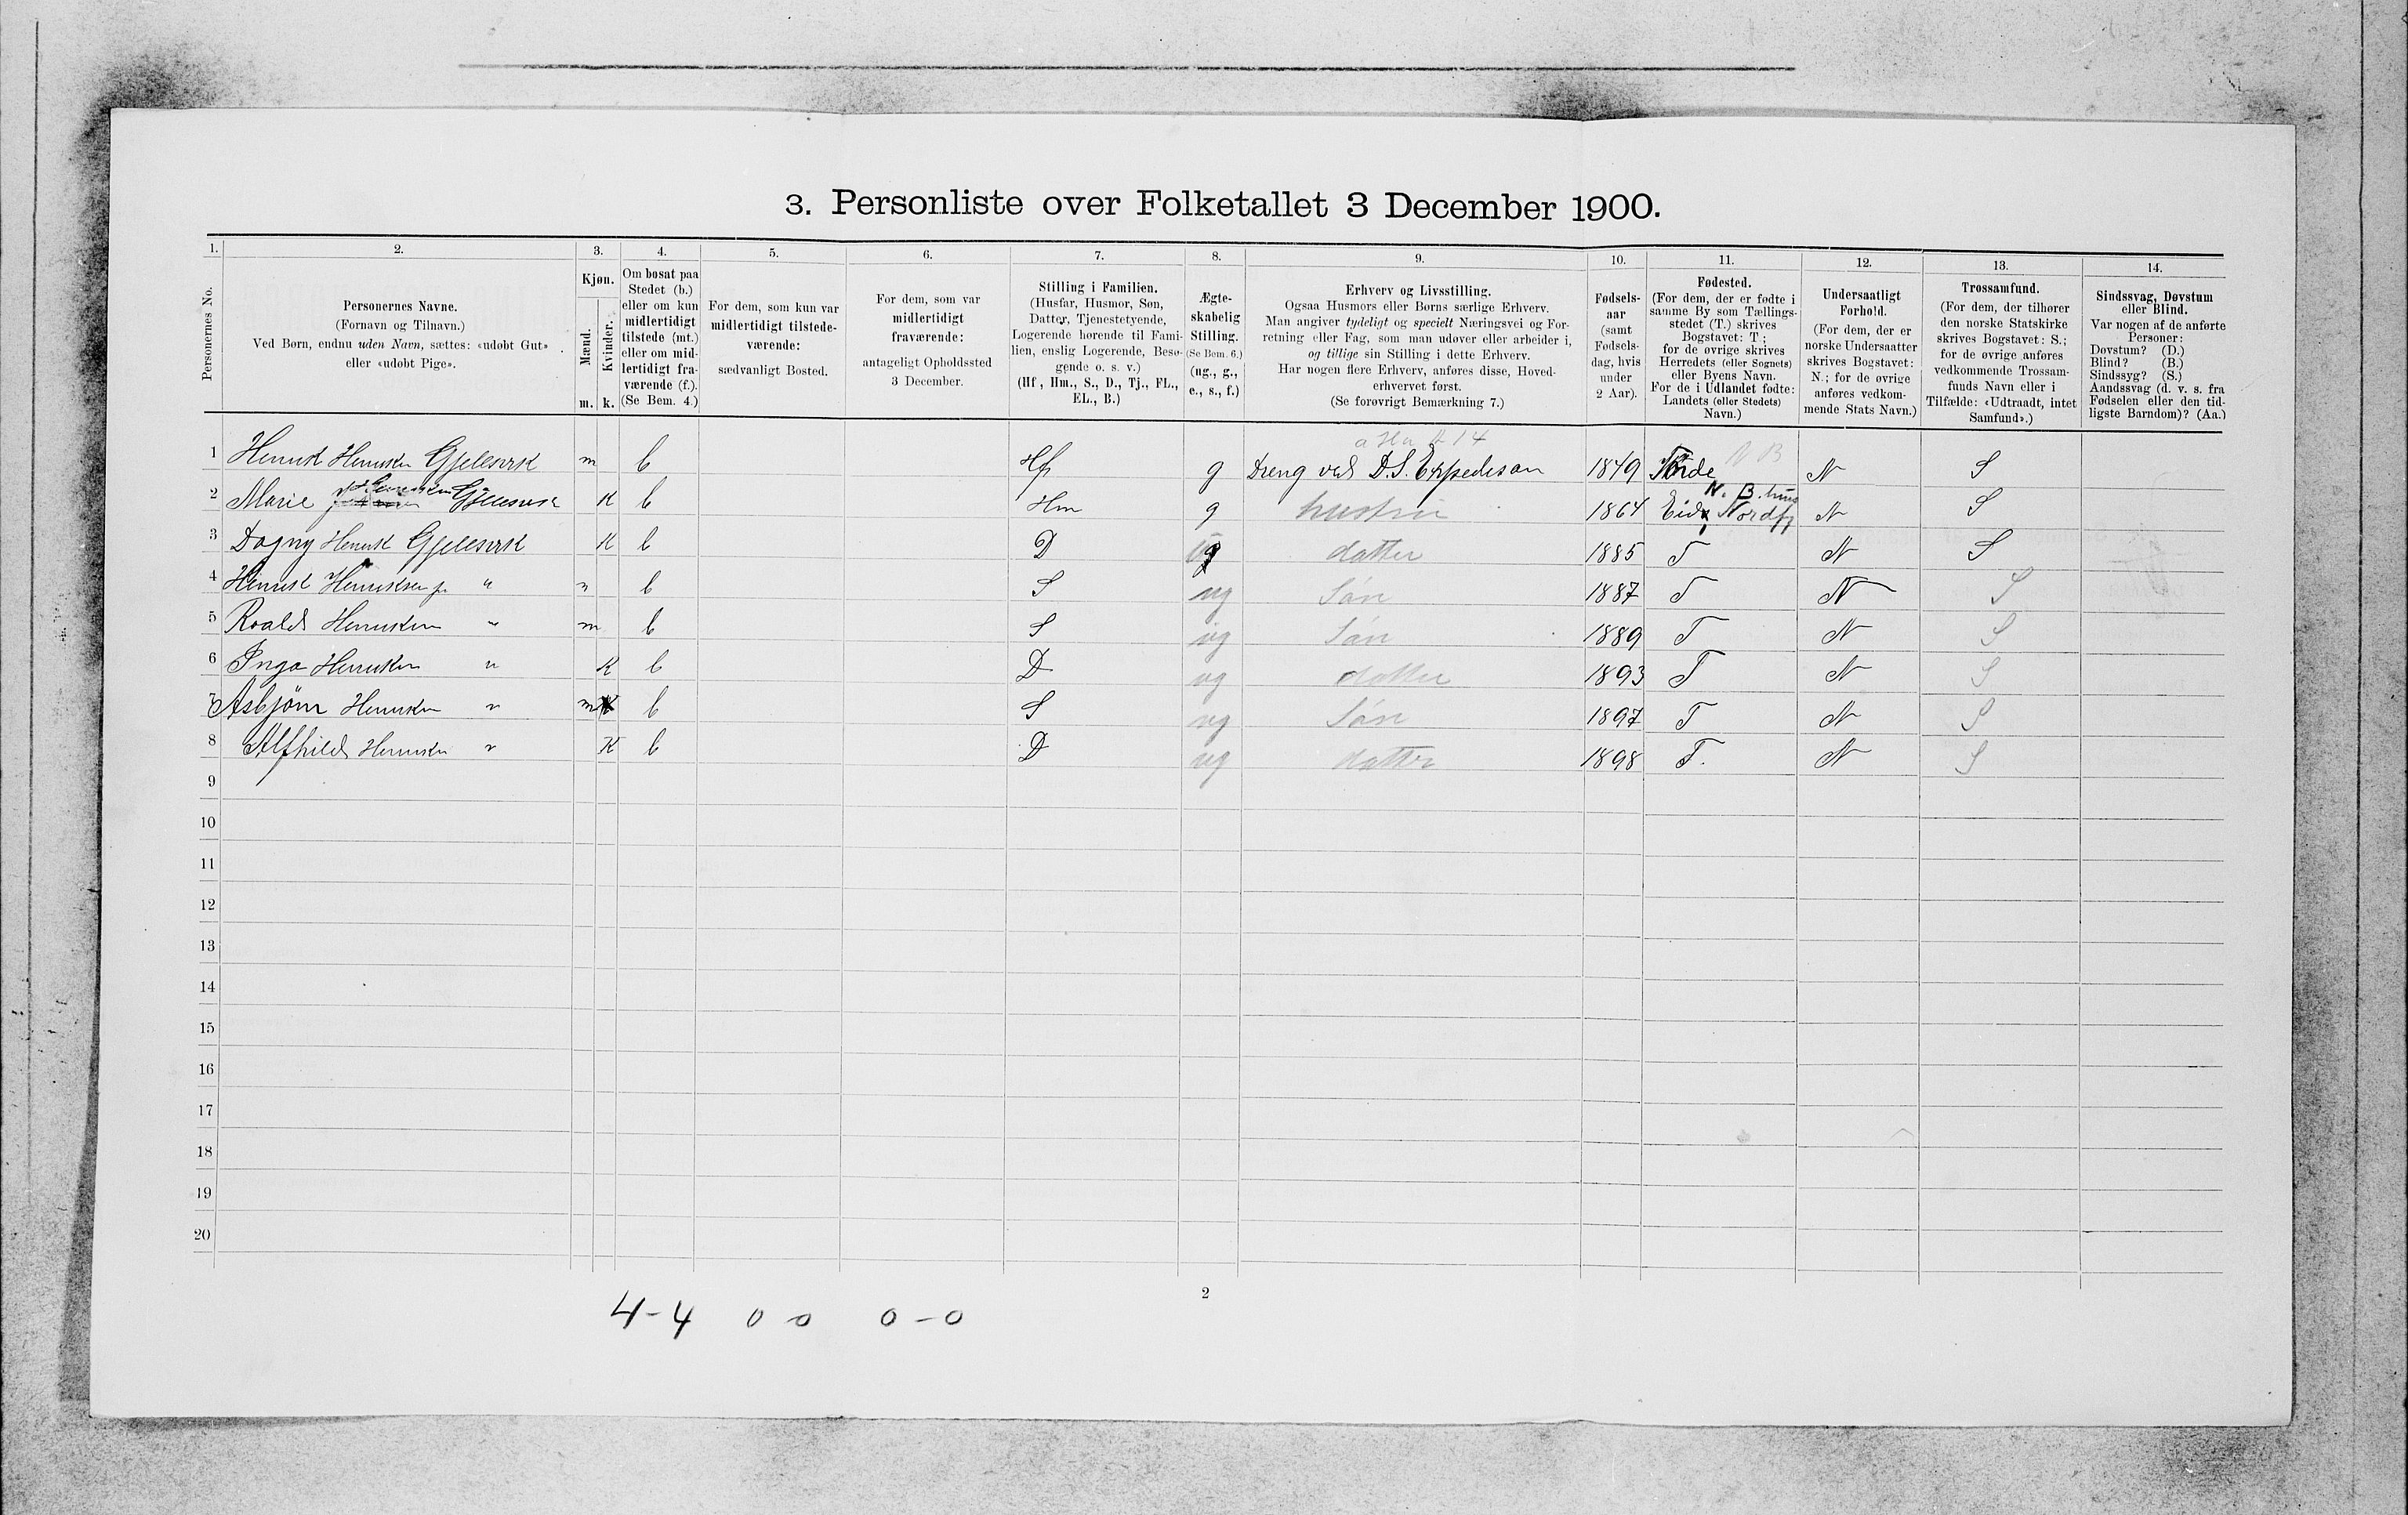 3. Personliste over Folketallet 3 December 1900.
1. 2. 3. 4. 5. 6. 7. 8. 9. 10. 11. 12. 13. 14.
Personernes No.
Personernes Navne.
(Fornavn og Tilnavn.)
Ved Børn, endnu uden Navn, sættes: «udøbt Gut»
eller «udøbt Pige».
Kjøn.
Mænd.
Kvinder.
m. k.
Om bosat paa
Stedet (b.)
eller om kun
midlertidigt
tilstede (mt.)
eller om mid-
lertidigt fra-
værende (f.).
(Se Bem. 4.)
For dem, som kun var
midlertidigt tilstede-
værende:
sædvanligt Bosted.
For dem, som var
midlertidigt
fraværende:
antageligt Opholdssted
3 December.
Stilling i Familien.
(Husfar, Husmor, Søn,
Datter, Tjenestetyende,
Logerende hørende til Fami-
lien, enslig Logerende, Besø-
gende o. s. v.)
(Hf, Hm., S., D., Tj., FL.,
EL., B.)
Ægte-
skabelig
Stilling.
(Se Bem. 6.)
(ug., g.,
e., s., f.)
Erhverv og Livsstilling.
Ogsaa Husmors eller Børns særlige Erhverv.
Man angiver tydeligt og specielt Næringsvei og For-
retning eller Fag, som man udøver eller arbeider i,
og tillige sin Stilling i dette Erhverv.
Har nogen flere Erhverv, anføres disse, Hoved-
erhvervet først.
(Se forøvrigt Bemærkning 7.)
Fødsels-
aar
(samt
Fødsels-
dag, hvis
under
2 Aar).
Fødested.
(For dem, der er fødte i
samme By som Tællings-
stedet (T.) skrives
Bogstavet: T;
for de øvrige skrives
Herredets (eller Sognets)
eller Byens Navn.
For de i Udlandet fødte:
Landets (eller Stedets)
Navn.)
Undersaatligt
Forhold.
(For dem, der er
norske Undersaatter
skrives Bogstavet:
N.; for de øvrige
anføres vedkom-
mende Stats Navn.)
Trossamfund.
(For dem, der tilhører
den norske Statskirke
skrives Bogstavet: S.;
for de øvrige anføres
vedkommende Trossam-
funds Navn eller i
Tilfælde: «Udtraadt, intet
Samfund».)
Sindssvag, Døvstum
eller Blind.
Var nogen af de anførte
Personer:
Døvstum? (D.)
Blind? (B.)
Sindssyg? (S.)
Aandssvag (d. v. s. fra
Fødselen eller den tid-
ligste Barndom)? (Aa.)
1 Henrik Henriksen Gjelesvik m b Hf g Dreng ved D.S. Expedision 1849 Førde N B N S
2 Marie Gjelesvik K b Hm g hustru 1864 Eid Nordfj N S
3 Dagny Henrik Gjelesvik K b D datter 1885 T N S
4 Henrik Henriksen jr. " m b S ug Søn 1887 T N S
5 Roald Henriksen " m b S ug Søn 1889 T N S
6 Inga Henriksen " K b D ug datter 1893 T N S
7 Asbjørn Henriksen " m b S ug Søn 1897 T N S
8 Alfhild Henriksen " K b D ug datter 1898 T. N S
9
10
11
12
13
14
15
16
17
18
19
20
2
4-4 0 0 0-0